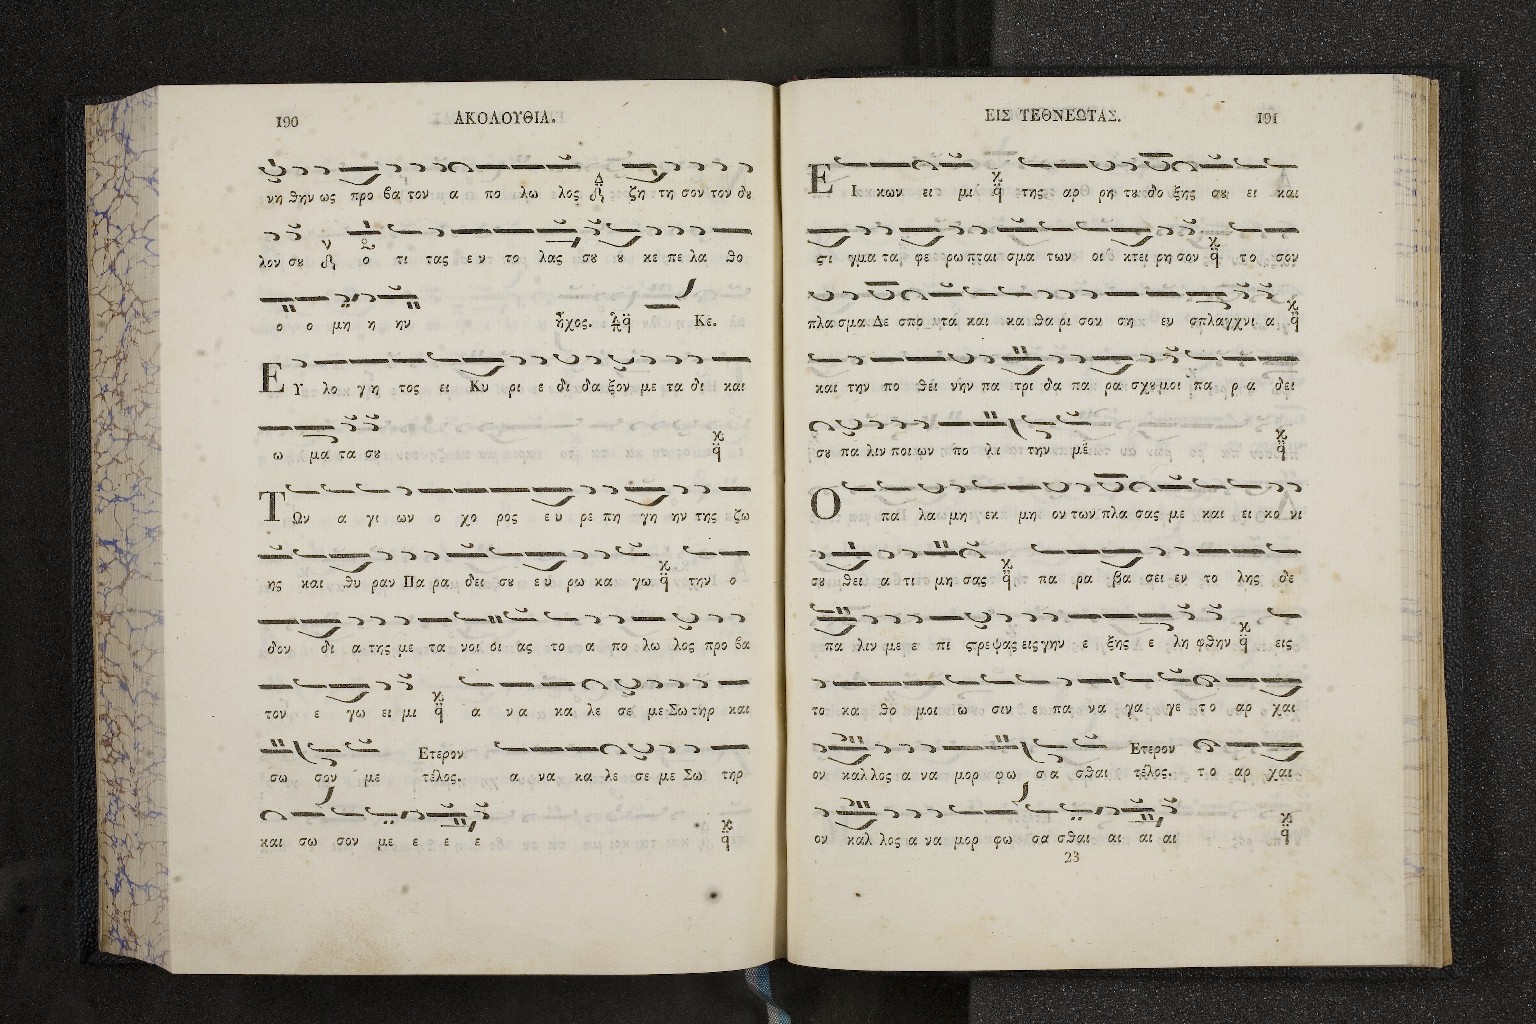 190 ΑΚΟΛΟΥΘΙΑ.
νη θην ως προ βα τον α πο λω λος ζη τη σον τον δȣ
λον σȣ ο τι τας εν το λας σȣ ȣ κε πε λα θο
ο ο μη η ην ἦχος. Κε.
ΕΥ λο γη τος ει Κυ ρι ε δι δα ξον με τα δι και
ω μα τα σȣ
ΤΩν α γι ων ο χο ρος ευ ρε πη γη ην της ζω
ης και θυ ραν Πα ρα δει σȣ ευ ρω κα γω την ο
δον δι α της με τα νοι οι ας το α πο λω λος προ βα
τον ε γω ει μι α να κα λε σε με Σω τηρ και
σω σον με Ετερον τέλος. α να κα λε σε με Σω τηρ
και σω σον με ε ε ε
ΕΙΣ ΤΕΘΝΕΩΤΑΣ. 191
ΕΙ κων ει μι της αρ ρη τȣ δο ξης σȣ ει και
ϛι γμα τα φε ρω πται σμα των οι κτει ρη σον το σον
πλα σμα Δε σπο τα και κα θα ρι σον ση εν σπλαγχνι α
και την πο θει νην πα τρι δα πα ρα σχȣ μοι πα ρα δει
σȣ πα λιν ποι ων πο λι την με
Ο πα λα μη εκ μη ον των πλα σας με και ει κο νι
σȣ θει α τι μη σας πα ρα βα σει εν το λης δε
πα λιν με ε πι ϛρεψας εις γην ε ξης ε λη φθην εις
το κα θο μοι ω σιν ε πα να γα γε το αρ χαι
ον καλ λος α να μορ φω σα σθαι Ετερον τέλος. το αρ χαι
ον καλ λος α να μορ φω σα σθαι αι αι αι
23